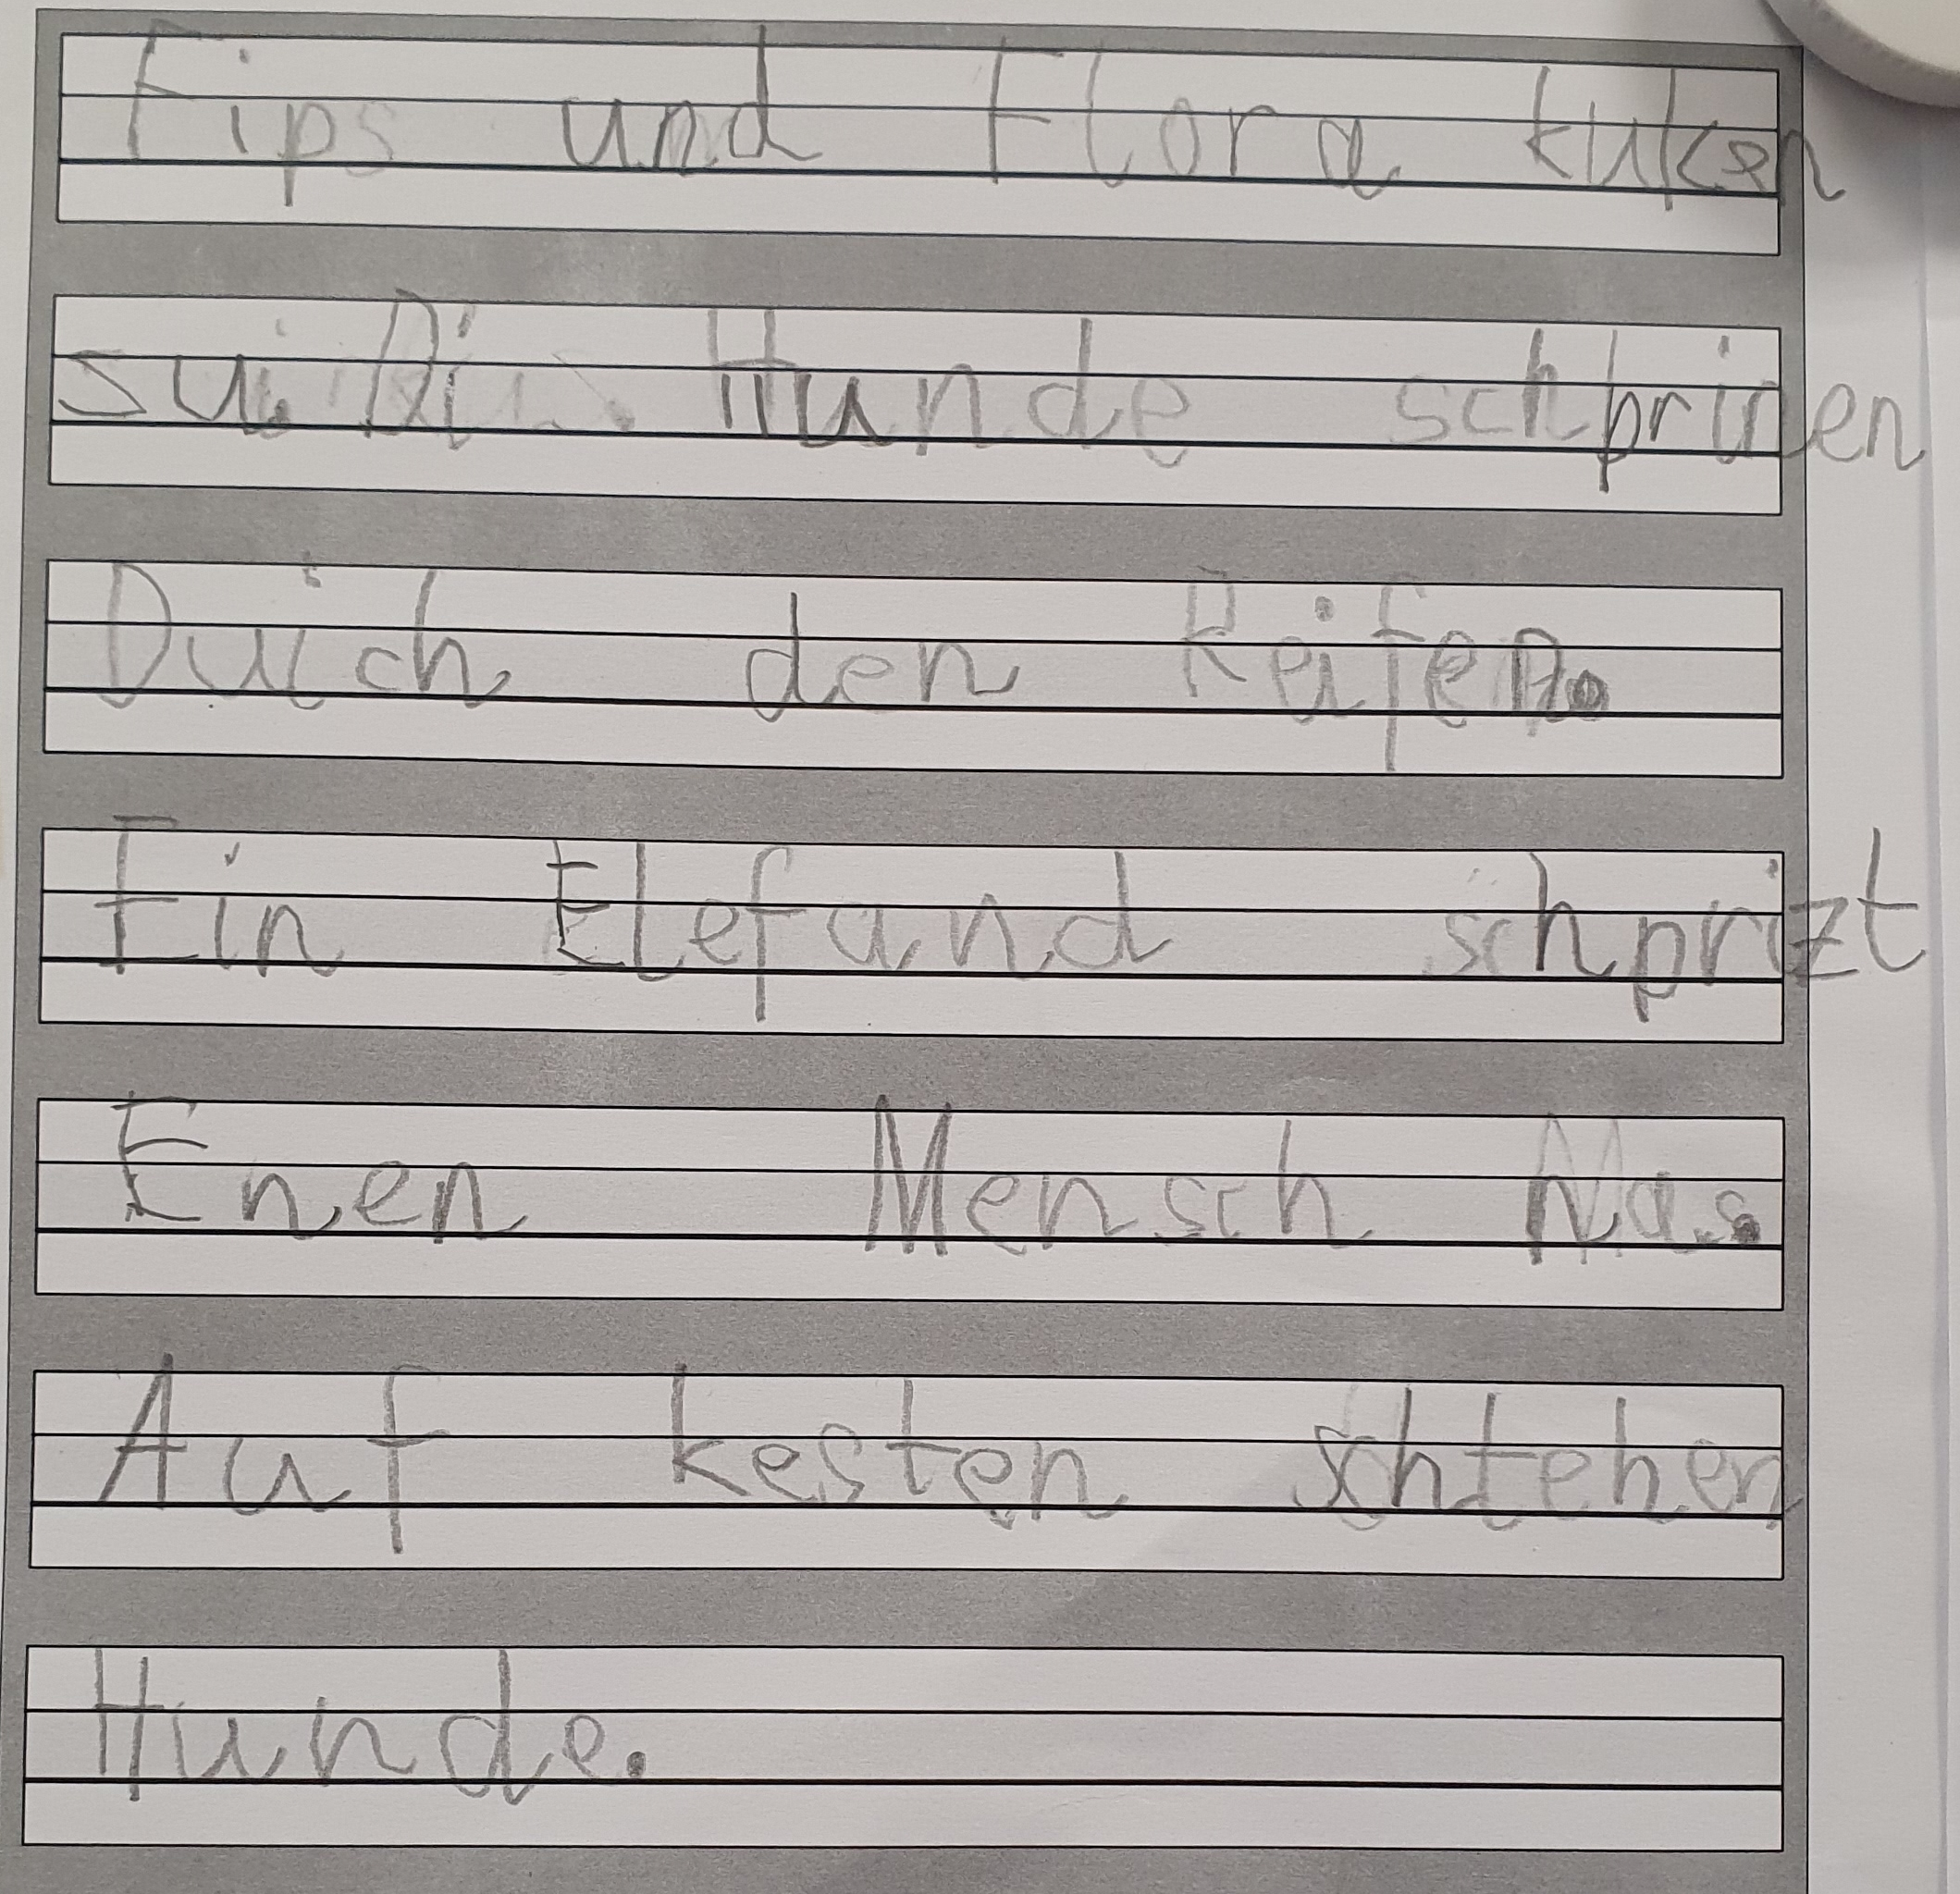 Fips und Flora kuken
su. Di Hunde schprinen
Duich den Reifen.
Ein Elefand schprizt
Enen Mensch Nas.
Auf kesten schtehen
Hunde.